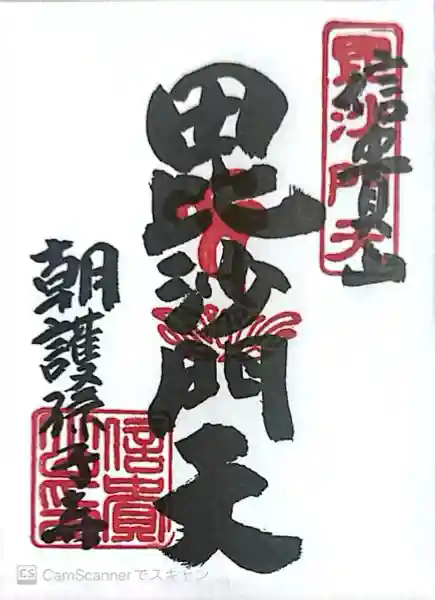 信貴山
毘沙門天
毘沙門天
朝護孫子寺
信貴
CS CamScannerでスキャン